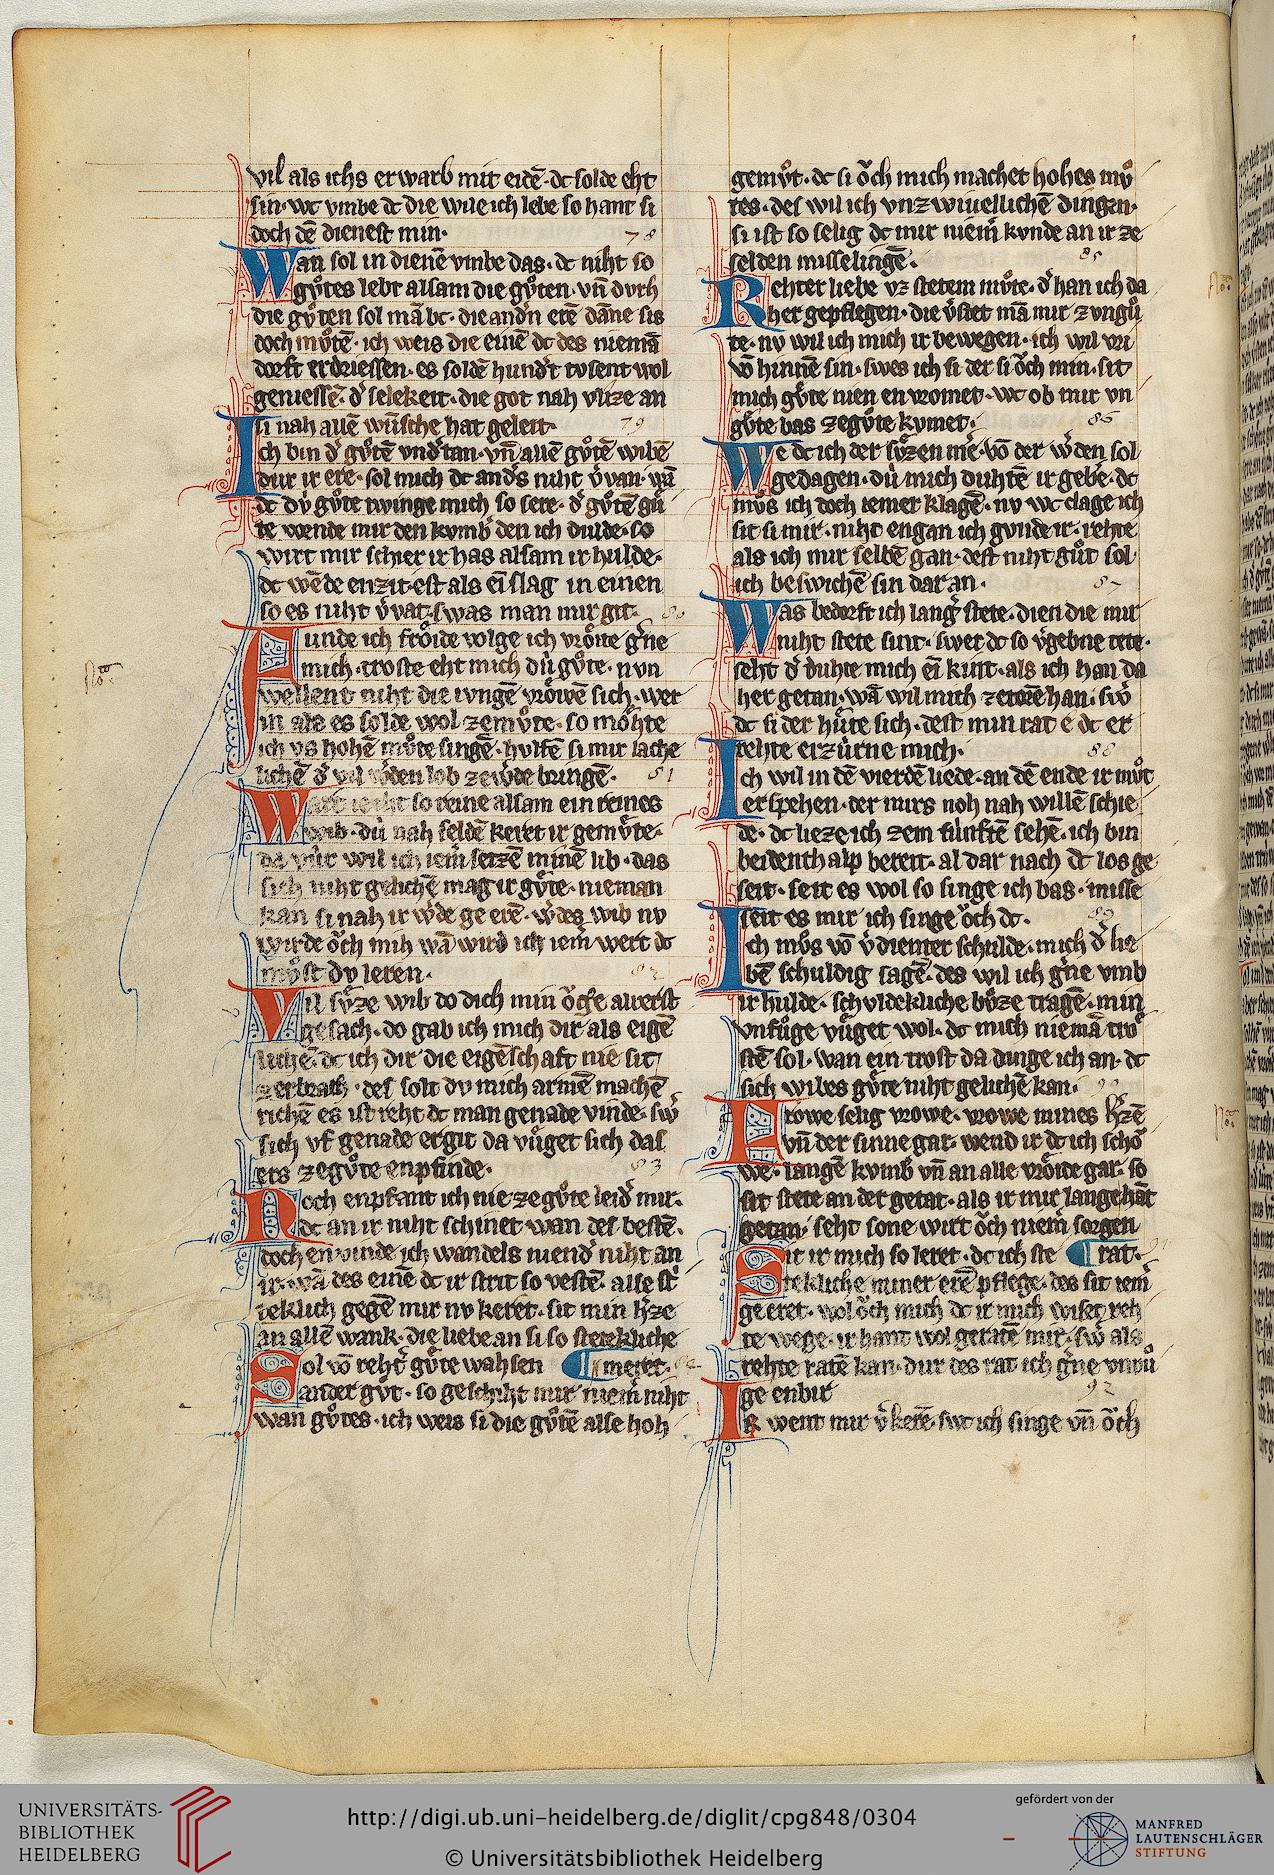 vil als ichs erwarb mit eidē · dc solde eht
sin · wc vmbe dc die wile ich lebe so hant si
doch dē dienest min · 78
Wan sol in dienē vmbe das · dc niht so
gůtes lebt alsam die gůten · vn̄ dvrh
die gůten sol mā
doch můtē · ich weis die einē dc des niemā
dorft erdriessen · es soldē hundˀt tvsent wol
geniessē · dˀ selekeit · die got nah vlize an
si nah allē wūsche hat geleit · 79
Ich bin dˀ gůtē vndˀtan · vn̄ allē gůtē wibē
dur ir ere · sol mich dc andˀs niht vˀvan · wā
dc dv́ gůte twinge mich so sere · dˀ gůtē gů
te wende mir den kvmbˀ den ich dulde · so
wirt mir schier ir has alsam ir hulde ·
dc wēde enzit · est als eī slag in einen
so es niht vˀvat · swas man mir git · 80
Funde ich frőide volge ich vrőite gˀne
mich · troste eht mich dú gůte · nvn
wellent niht die ivngē vrőwē sich · wer
in als es solde wol zemůte · so mőhte
ich vs hohē můte singē · hvlfē si mir lache
lichē dˀ vil wˀden lob zewˀde bringē · 81
Wart ieiht so reine alsam ein reines
wib · dú nah seldē keret ir gemůte ·
da vúr wil ich iem̄ setzē minē lib · das
sich niht gelichē mag ir gůte · nieman
kan si nah ir wˀde ge erē · wˀdes wib nv
wirde őch mih wā wird ich iem̄ wert dc
můst dv leren · 82
Vil sůze wib do dich min őge alrerst
gesach · do gab ich mich dir als eigē
lichē · dc ich dir die eigēschaft nie sit
zerbrach · des solt dv mich armē machē
richē es ist reht dc man genade vinde · swˀ
sich vf genade ergit da vůget sich das
ers zegůte enpfinde · 83
Noch enpfant ich nie zegůte leidˀ mir ·
dc an ir niht schinet wan des bestē ·
doch en vinde ich wandels niendˀ niht an
ir · wā des einē dc ir strit so vestē · alse stˀ
teklich gegē mir nv keret · sit min hˀze
an allē wank · die liebe an si so stetekliche
Sol vō rehtˀ gůte wahsen meret · 84
ander gvt · so geschiht mir niem̄ niht
wan gůtes · ich weis si die gůtē alse hoh
gemůt · dc si őch mich machet hohes mů
tes · des wil ich vnzwiuellichē dingen ·
si ist so selig dc mir niem̄ kvnde an ir ze
selden misselingē · 85
Rehter liebe vz stetem můte · dˀ han ich da
her gepflegen · die vˀstet mā mir zvngů
te · nv wil ich mich ir bewegen · ich wil vri
vō hinnē sin · swes ich si der si őch min · sit
mich gůte nien en vromet · wc ob mir vn
gůte bas zegůte kvmet · 86
We dc ich der sůzen mē · vō der wˀden sol
gedagen · dú mich duhtē ir gebē · dc
můs ich doch iemer klagē · nv wc clage ich
sit si mir · niht engan ich gvnde ir · rehte
als ich mir selbē gan · dest niht gůt sol
ich beswichē sin dar an · 87
Was bedorft ich langˀ stete · dien die mir
niht stete sint · swer dc so vˀgebne tete ·
seht dˀ duhte mich eī kint · als ich han da
her getan · wā wil mich zetorē han · swˀ
dc si der hůte sich · dest min rat e dc er
rehte erzúrne mich · 88
Ich wil in dē vierdē liede · an dē ende ir můt
er spehen · der mirs noh nah willē schie
de · dc lieze ich zem fúnftē sehē · ich bin
beidenthalp bereit · al dar nach dc los ge
seit · seit es wol so singe ich bas · misse
seit es mir ich singe őch dc · 89
Ich můs vō vˀdienter schulde · mich dˀ lie
bē schuldig sagē · des wil ich gˀne vmb
ir hulde · schvldekliche bůze tragē · min
vnfůge vůget wol · dc mich niemā trő
stē sol · wan ein trost da dinge ich an · dc
sich wibes gůte niht gelichē kan · 90
Frowe selig vrowe · vrowe mines hˀzē
vn̄ der sinne gar · wend ir dc ich schő
we · langē kvmbˀ vn̄ an alle vrőide gar · so
sit stete an der getat · als ir mir lange hāt
getan · seht sone wirt őch niem̄ sorgen
Sit ir mich so leret · dc ich ste rat · 91
tekliche miner erē pflege · des sit iem̄
geeret · wol őch mich dc ir mich wiset reh
te wege · ir hant wol geratē mir · swˀ als
rehte ratē kan · dur des rat ich gˀne vnvů
ge enbir 92
Ir went mir vˀkerē · swc ich singe vn̄ őch
No:
No:
No:
UNIVERSITÄTS-
BIBLIOTHEK
HEIDELBERG
http://digi.ub.uni-heidelberg.de/diglit/cpg848/0304
© Universitätsbibliothek Heidelberg
gefördert von der
MANFRED
LAUTENSCHLÄGER
STIFTUNG